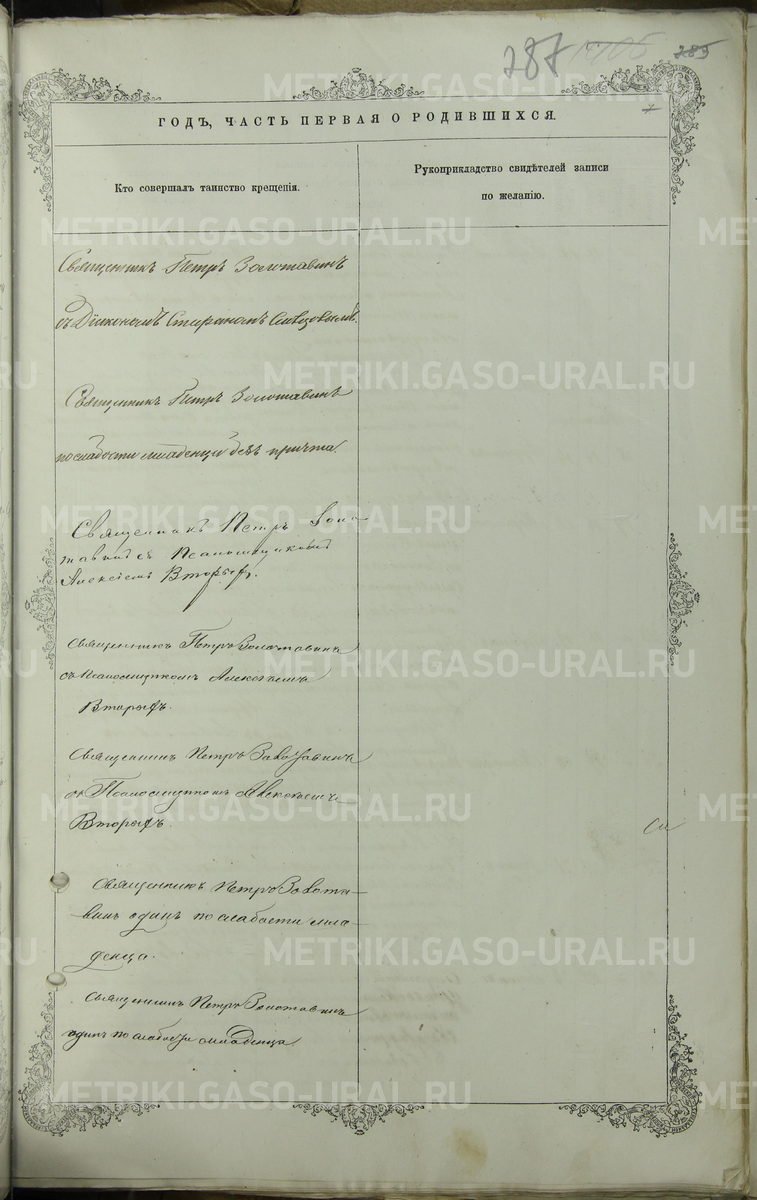 287 285
ГОДЪ, ЧАСТЬ ПЕРВАЯ О РОДИВШИХСЯ.
Кто совершалъ таинство крещенія.
Рукоприкладство свидѣтелей записи
по желанію.
Священникъ Петръ Золотавинъ
съ Діакономъ Стефаномъ
Священникъ Петръ Золотавинъ
по слабости младенца безъ причта
Священникъ Петръ Золо-
тавинъ съ Псаломщикомъ
Алексѣемъ Вторыхъ.
Священникъ Петръ Золотавинъ
съ Псаломщикомъ Алексѣемъ
Вторыхъ.
Священникъ Петръ Золотавинъ
съ Псаломщикомъ Алексѣемъ
Вторыхъ.
Священникъ Петръ Золота-
винъ одинъ по слабости мла-
денца.
Священникъ Петръ Золотавинъ
одинъ по слабости младенца
METRIKI.GASO-URAL.RU